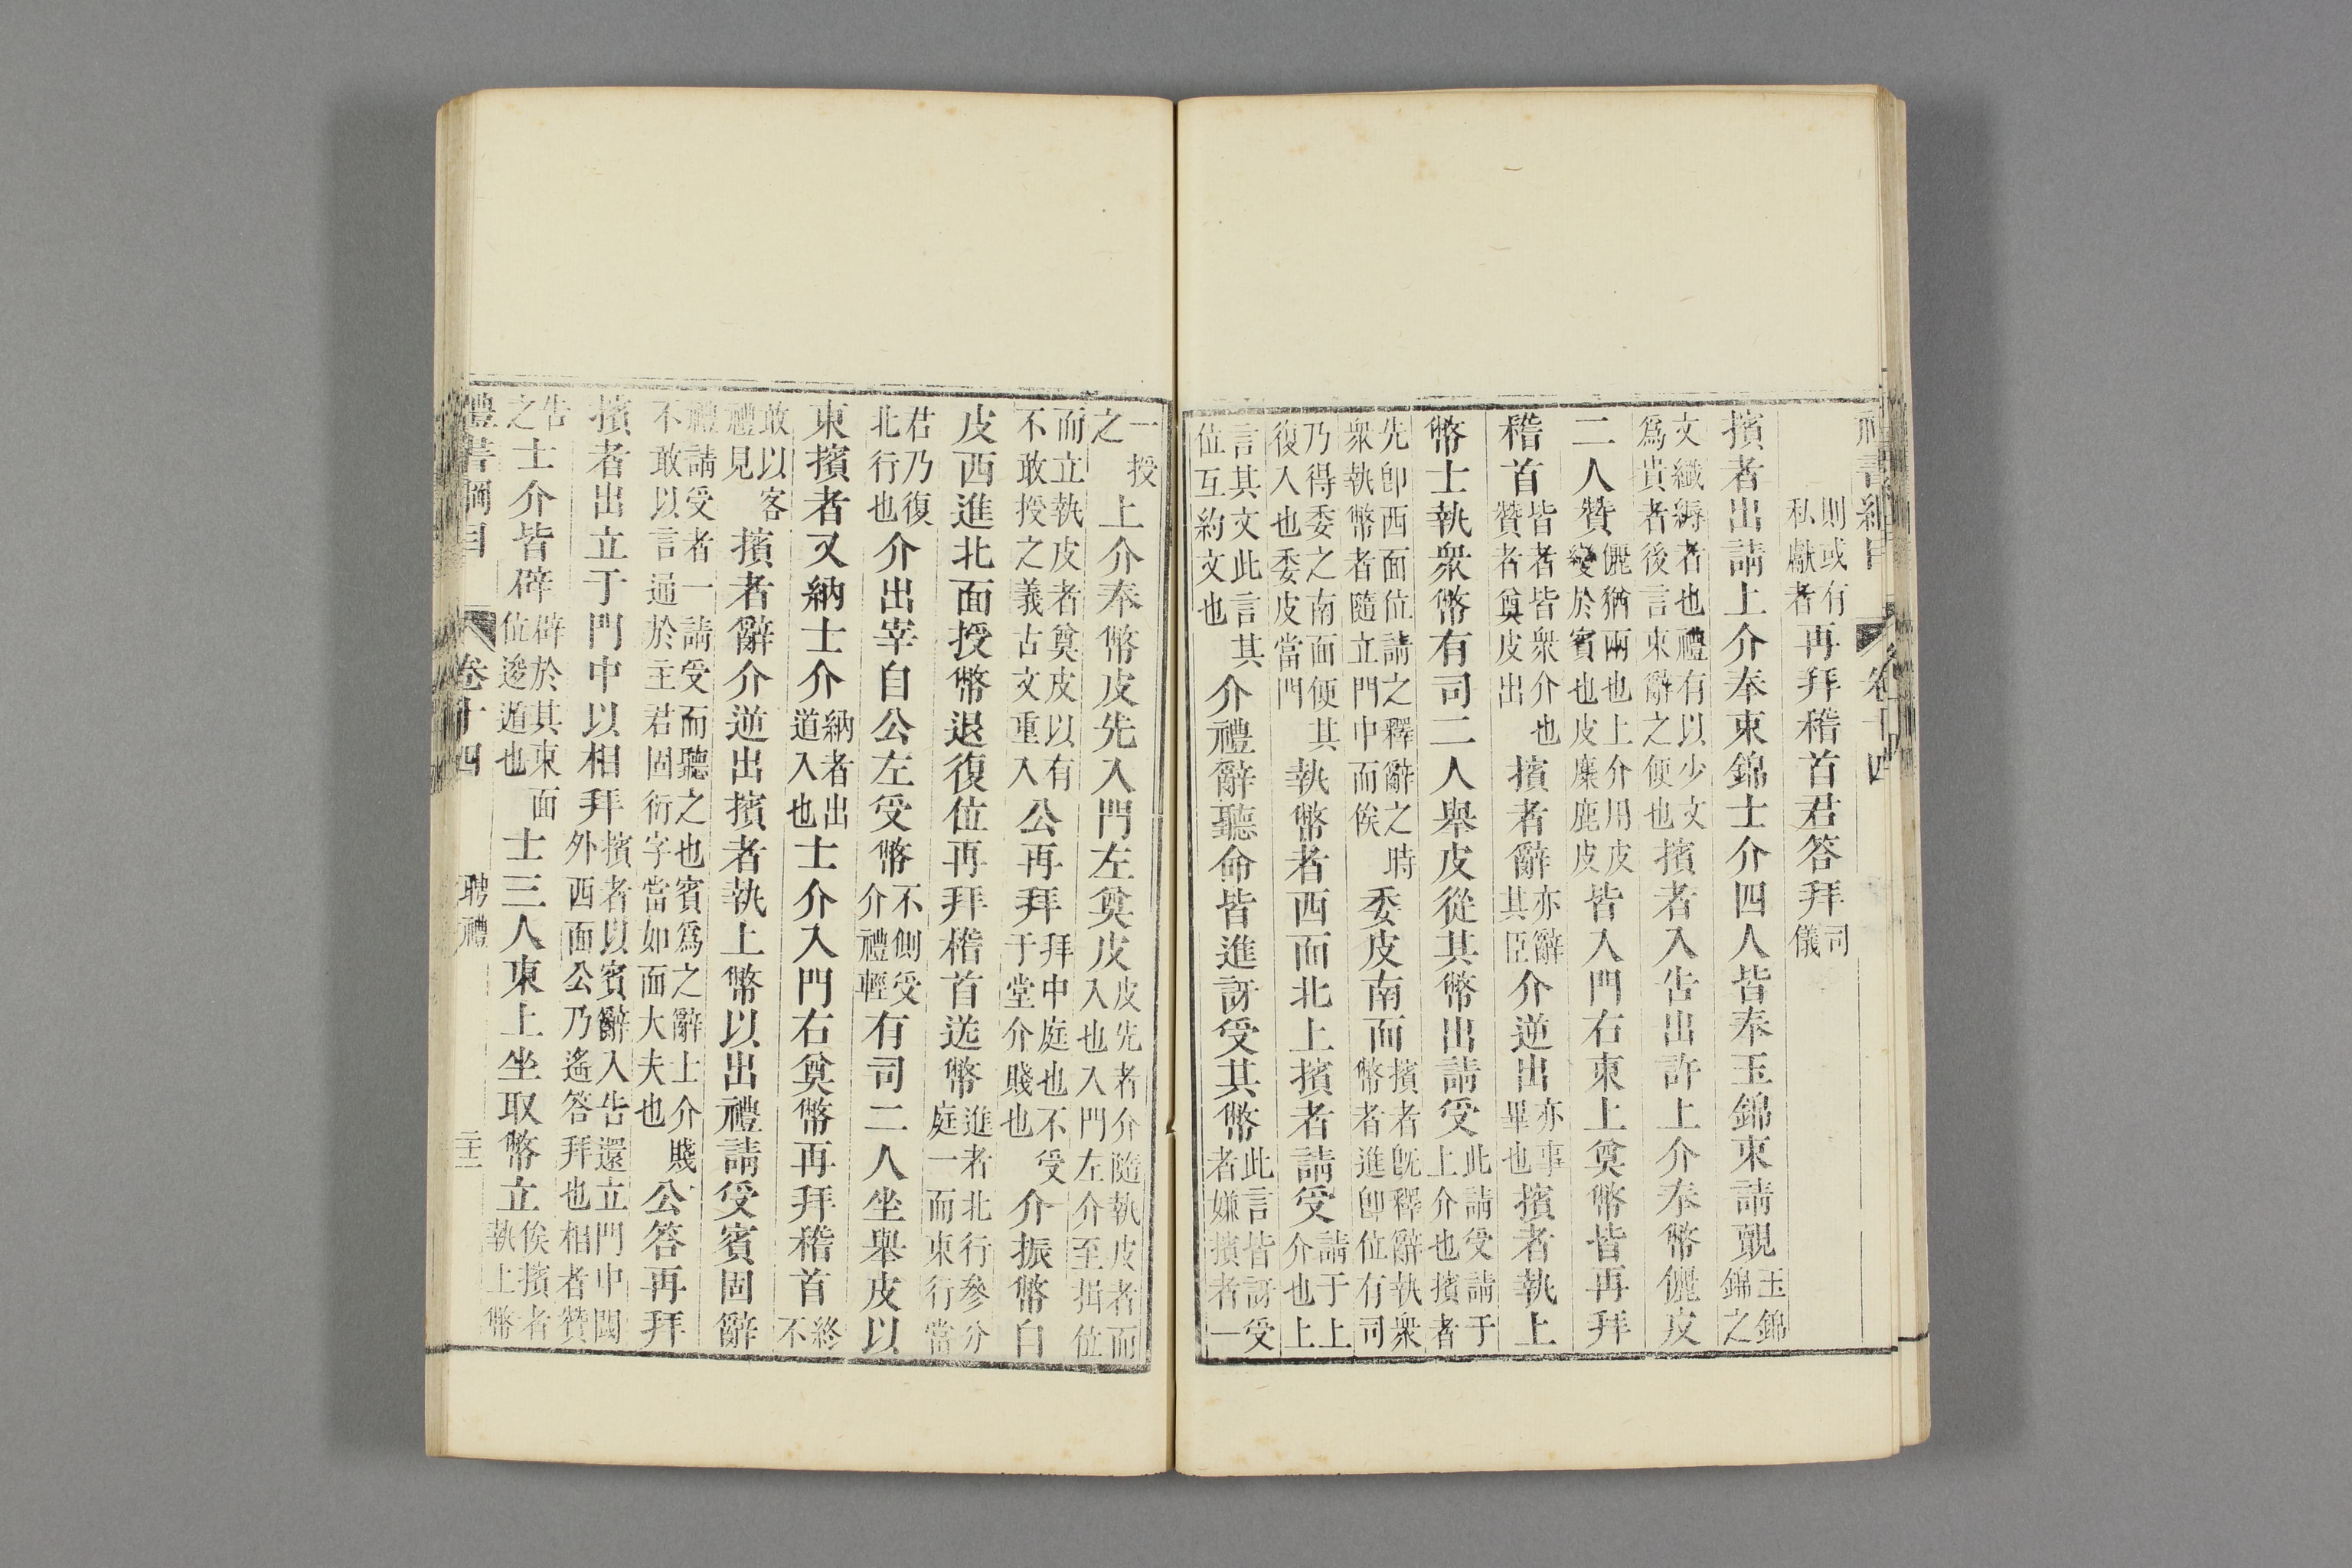 禮書綱目 卷十四
則或有私獻者再拜稽首君答拜司儀
擯者出請上介奉束錦士介四人皆奉玉錦束請覿玉錦錦之
文纖縟者也禮有以少文爲貴者後言束辭之便也擯者入告出許上介奉幣儷皮
二人贊儷猶兩也上介用皮變於賓也皮麋鹿皮皆入門右東上奠幣皆再拜
稽首皆者皆衆介也贊者奠皮出擯者辭亦辭其臣介逆出亦事畢也擯者執上
幣士執衆幣有司二人舉皮從其幣出請受此請受請于上介也擯者
先卽西面位請之釋辭之時衆執幣者隨立門中而俟委皮南面擯者旣釋辭執衆幣者進卽位有司
乃得委之南面便其復入也委皮當門執幣者西面北上擯者請受請于上介也上
言其文此言其位互約文也介禮辭聽命皆進訝受其幣此言皆訝受者嫌擯者一
一授之上介奉幣皮先入門左奠皮皮先者介隨執皮者而入也入門左介至揖位
而立執皮者奠皮以有不敢授之義古文重入公再拜拜中庭也不受于堂介賤也介振幣自
皮西進北面授幣退復位再拜稽首送幣進者北行參分庭一而東行當
君乃復北行也介出宰自公左受幣不側受介禮輕有司二人坐舉皮以
東擯者又納士介納者出道入也士介入門右奠幣再拜稽首終不
敢以客禮見擯者辭介逆出擯者執上幣以出禮請受賓固辭
禮請受者一請受而聽之也賓爲之辭士介賤不敢以言通於主君固衍字當如面大夫也公答再拜
擯者出立于門中以相拜擯者以賓辭入告還立門中閾外西面公乃遙答拜也相者贊
告之士介皆辟辟於其東面位逡遁也士三人東上坐取幣立俟擯者執上幣
禮書綱目 卷十四 聘禮